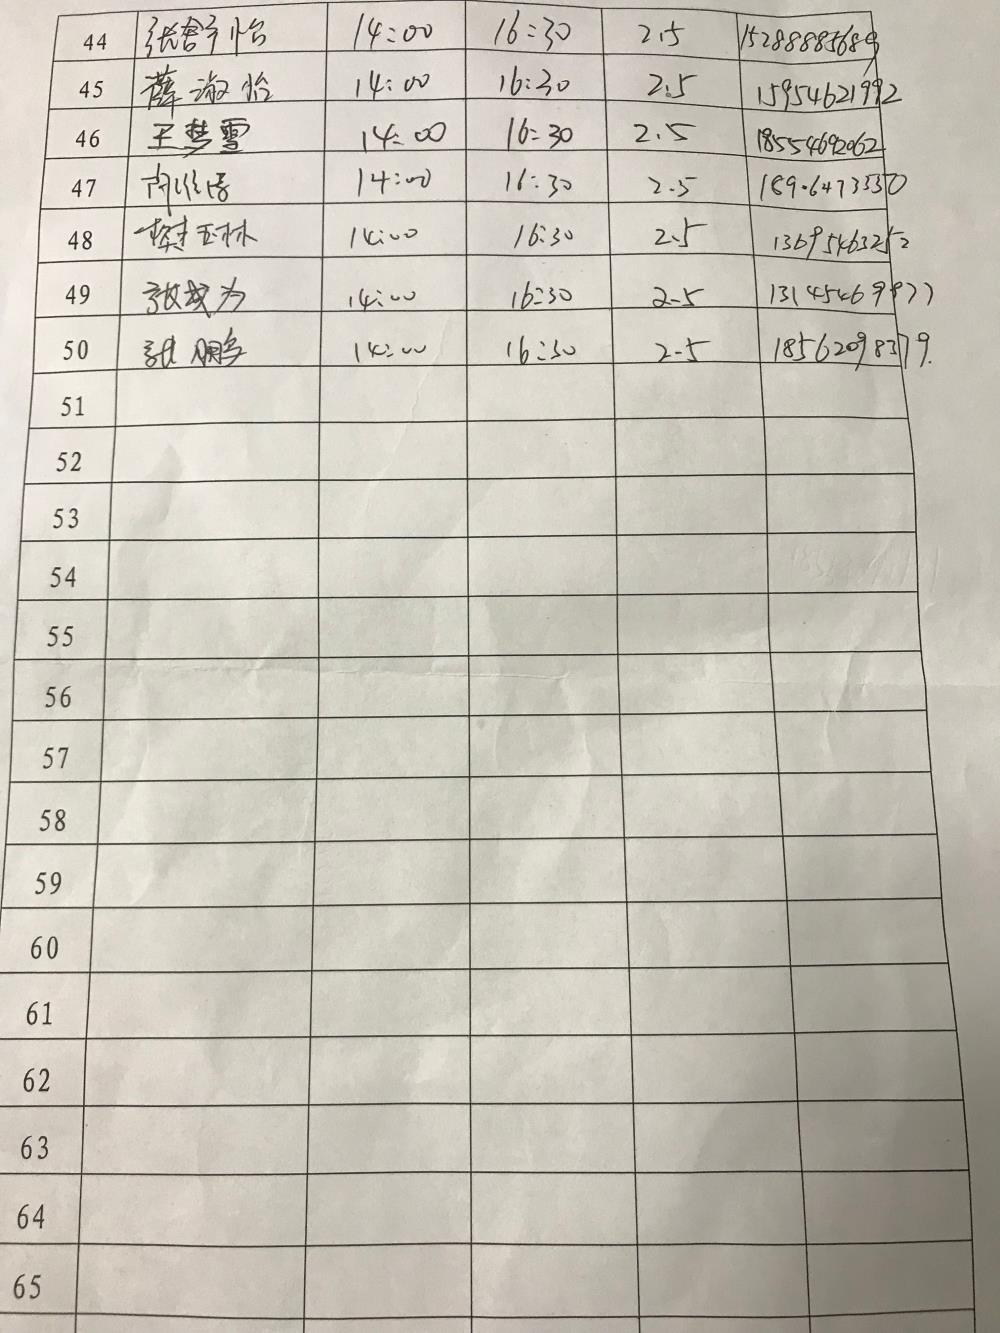 44 14:00 16:30 2.5 15288885689
45 薛淑怡 14:00 16:30 2.5 15954621992
46 王梦雪 14:00 16:30 2.5 18554692062
47 14:00 16:30 2.5
48 14:00 16:30 2.5
49 张成为 14:00 16:30 2.5
50 张鹏 14:00 16:30 2.5 18562098379.
51
52
53
54
55
56
57
58
59
60
61
62
63
64
65